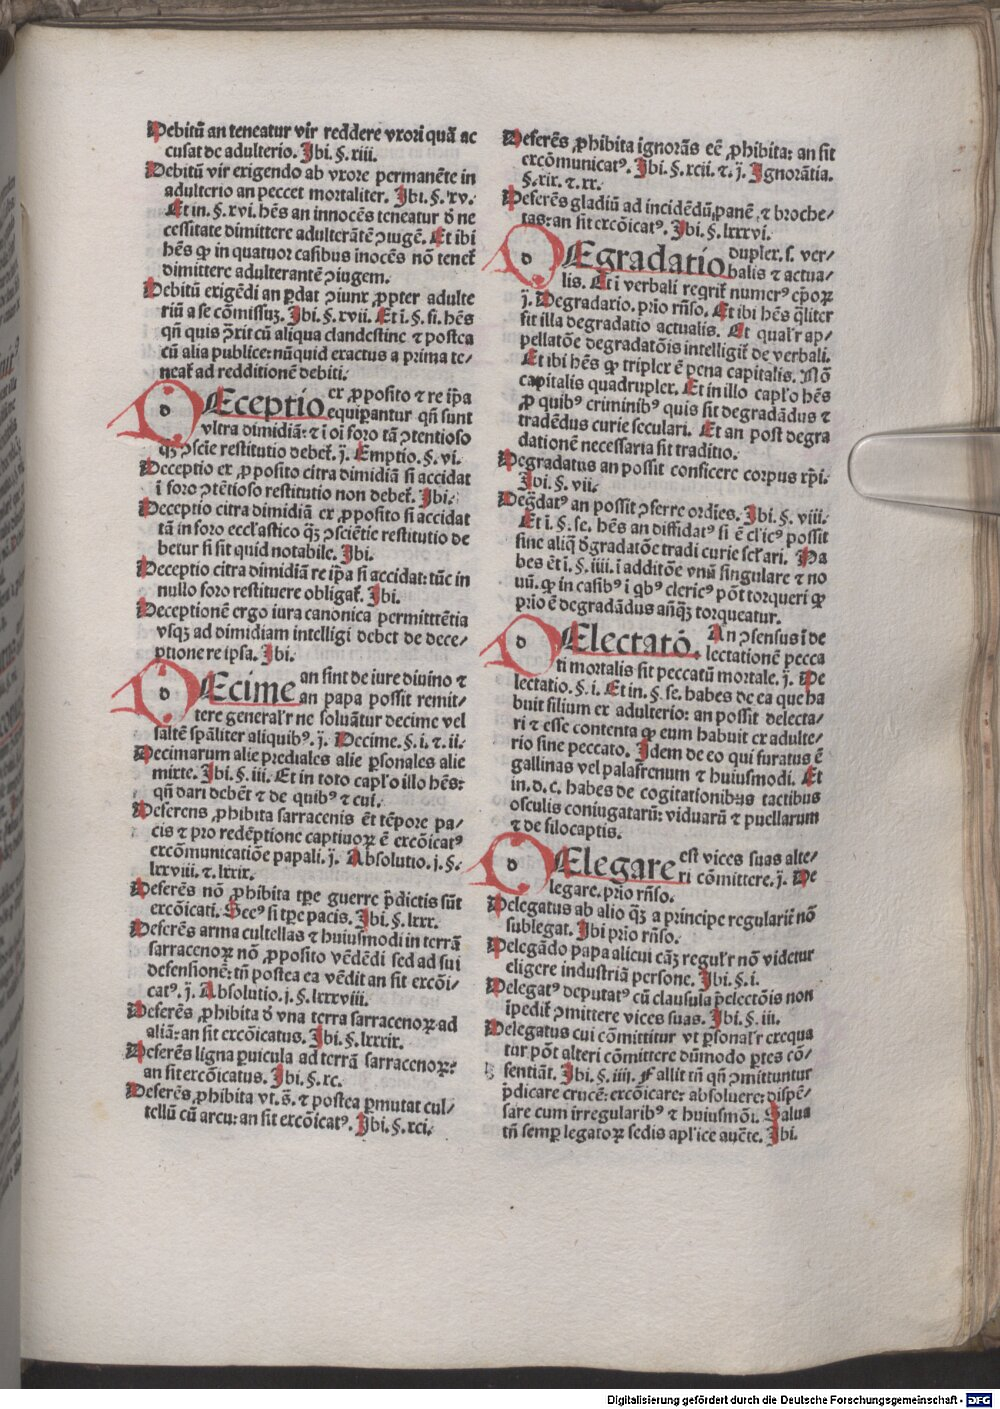 Debitū an teneatur vir reddere vxori quā ac
cusat de adulterio. Ibi. §. xiii.
Debitū vir exigendo ab vxore permanēte in
adulterio an peccet mortaliter. Ibi. §. xv.
Et in. §. xvi. hēs an innocēs teneatur d̄ ne
cessitate dimittere adulterātē ꝯiugē. Et ibi
hēs ꝙ in quatuor casibus inocēs nō teneť
dimittere adulterantē ꝯiugem.
Debitū exigēdi an p̄dat ꝯiunx ꝓpter adulte
riū a se cōmissuꝫ. Ibi. §. xvii. Et ī. §. si. hēs
qñ quis ꝯ̄rit cū aliqua clandestine ⁊ postea
cū alia publice: nūquid exactus a prima te⸗
neať ad redditionē debiti.
DEceptio ex ꝓposito ⁊ re ip̄a
equipantur qñ sunt
vltra dimidiā: ⁊ ī oī foro tā ꝯtentioso
qꝫ ꝯscīe restitutio debeť. j̄. Emptio. §. vi.
Deceptio ex ꝓposito citra dimidiā si accidat
ī foro ꝯtētioso restitutio non debeť. Ibi.
Deceptio citra dimidiā ex ꝓposito si accidat
tā in foro eccl'astico qꝫ ꝯsciētie restitutio de
betur si sit quid notabile. Ibi.
Deceptio citra dimidiā re ip̄a si accidat: tūc in
nullo foro restituere obligať. Ibi.
Deceptionē ergo iura canonica permittētia
vsqꝫ ad dimidiam intelligi debet de dece⸗
ptione re ipsa. Ibi.
DEcime an sint de iure diuino ⁊
an papa possit remit⸗
tere general'r ne soluātur decime vel
saltē spāliter aliquibꝰ. j̄. Decime. §. i. ⁊. ii.
Decimarum alie prediales alie ꝑsonales alie
mixte. Ibi. §. iii. Et in toto capl'o illo hēs:
qñ dari debēt ⁊ de quibꝰ ⁊ cui.
Deferens ꝓhibita sarracenis ēt tēpore pa⸗
cis ⁊ pro redēptione captiuoꝝ ē excōicatꝰ
excōmunicatiōe papali. j̄. Absolutio. j. §.
lxxviii. ⁊. lxxix.
Deferēs nō ꝓhibita tꝑe guerre p̄dictis sūt
excōicati. Secꝰ si tꝑe pacis. Ibi. §. lxxx.
Deferēs arma cultellas ⁊ huiusmodi in terrā
sarracenoꝝ nō ꝓposito vēdēdi sed ad sui
defensionē: tñ postea ea vēdit an sit excōi⸗
catꝰ. j̄. Absolutio. j. §. lxxxviii.
Deferēs ꝓhibita d̄ vna terra sarracenoꝝ ad
aliā: an sit excōicatus. Ibi. §. lxxxix.
Deferēs ligna ꝑuicula ad terrā sarracenoꝝ:
an sit excōicatus. Ibi. §. xc.
Deferēs ꝓhibita vt. s̄. ⁊ postea ꝑmutat cul⸗
tellū cū arcu: an sit excōicatꝰ. Ibi. §. xci.
Deferēs ꝓhibita ignorās eē ꝓhibita: an sit
excōmunicatꝰ. Ibi. §. xcii. ⁊. j̄. Ignorātia.
§. xix. ⁊. xx.
Deferēs gladiū ad incidēdū panē ⁊ broche⸗
tas: an sit excōicatꝰ. Ibi. §. lxxxvi.
DEgradatio duplex. s. ver⸗
balis ⁊ actua⸗
lis. Et ī verbali reqrit̄ numerꝰ ep̄oꝝ
j̄. Degradatio. prio rñso. Et ibi hēs qliter
sit illa degradatio actualis. Et qual'r ap⸗
pellatōe degradatōis intelligit̄ de verbali.
Et ibi hēs ꝙ triplex ē pena capitalis. Nō
capitalis quadruplex. Et in illo capl'o hēs
ꝓ quibꝰ criminibꝰ quis sit degradādus ⁊
tradēdus curie seculari. Et an post degra
dationē necessaria sit traditio.
Degradatus an possit conficere corpus xp̄i.
Ibi. §. vii.
Degr̄datꝰ an possit ꝯferre ordīes. Ibi. §. viii.
Et ī. §. se. hēs an diffidatꝰ si ē cl'icꝰ possit
sine aliq̄ d̄gradatōe tradi curie scl'ari. Ha
bes ēt ī. §. iiii. ī additōe vnū singulare ⁊ no
uū. ꝙ in casibꝰ ī qbꝰ clericꝰ pōt torqueri ꝙ
prio ē degradādus añqꝫ torqueatur.
DElectatō. An ꝯsensus ī de
lectationē pecca
ti mortalis sit peccatū mortale. j̄. De
lectatio. §. i. Et in. §. se. habes de ea que ha
buit filium ex adulterio: an possit delecta⸗
ri ⁊ esse contenta ꝙ eum habuit ex adulte⸗
rio sine peccato. Idem de eo qui furatus ē
gallinas vel palafrenum ⁊ huiusmodi. Et
in. d. c. habes de cogitationibus tactibus
osculis coniugatarū: viduarū ⁊ puellarum
⁊ de filocaptis.
DElegare est vices suas alte⸗
ri cōmittere. j̄. De
legare. prio rñso.
Delegatus ab alio qꝫ a principe regularit̄ nō
sublegat. Ibi prio rñso.
Delegādo papa alicui cāꝫ regul'r nō videtur
eligere industriā persone. Ibi. §. i.
Delegatꝰ deputatꝰ cū clausula p̄electōis non
īpediť ꝯmittere vices suas. Ibi. §. iii.
Delegatus cui cōmittitur vt ꝑsonal'r exequa
tur pōt alteri cōmittere dūmodo ꝑtes cō⸗
sentiāt. Ibi. §. iiii. Fallit tñ qñ ꝯmittuntur
p̄dicare crucē: excōicare: absoluere: dispē⸗
sare cum irregularibꝰ ⁊ huiusmōi. Salua
tñ semꝑ legatoꝝ sedis apl'ice auc̄te. Ibi.
Digitalisierung gefördert durch die Deutsche Forschungsgemeinschaft - DFG